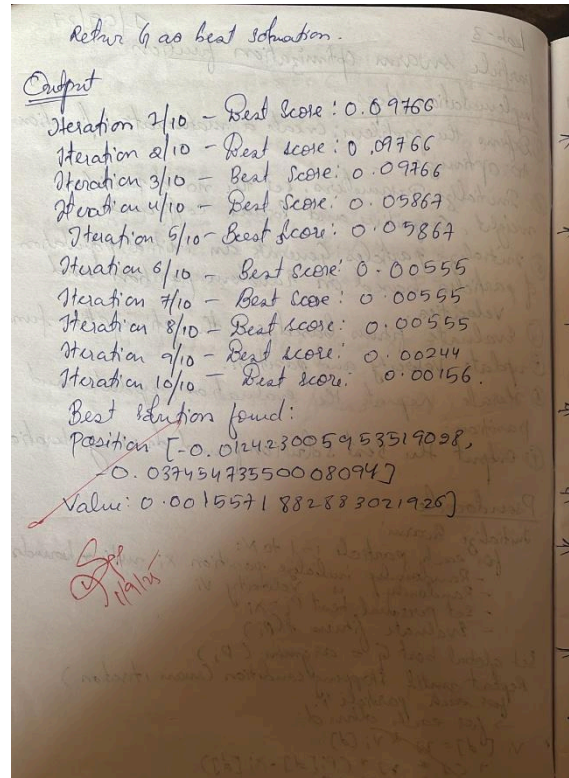 Retur G as best solution.
Output
Iteration 1/10 - Best Score: 0.09766
Iteration 2/10 - Best score: 0.09766
Iteration 3/10 - Best Score: 0.09766
Iteration 4/10 - Best Score: 0.05867
Iteration 5/10 - Best Score: 0.05867
Iteration 6/10 - Best Score: 0.00555
Iteration 7/10 - Best Score: 0.00555
Iteration 8/10 - Best score: 0.00555
Iteration 9/10 - Best score: 0.00244
Iteration 10/10 - Best score: 0.00156.
Best solution found:
Position [-0.012423005953519098,
0.037454735500008094]
Value: 0.0015571882883021926]
1/9/25